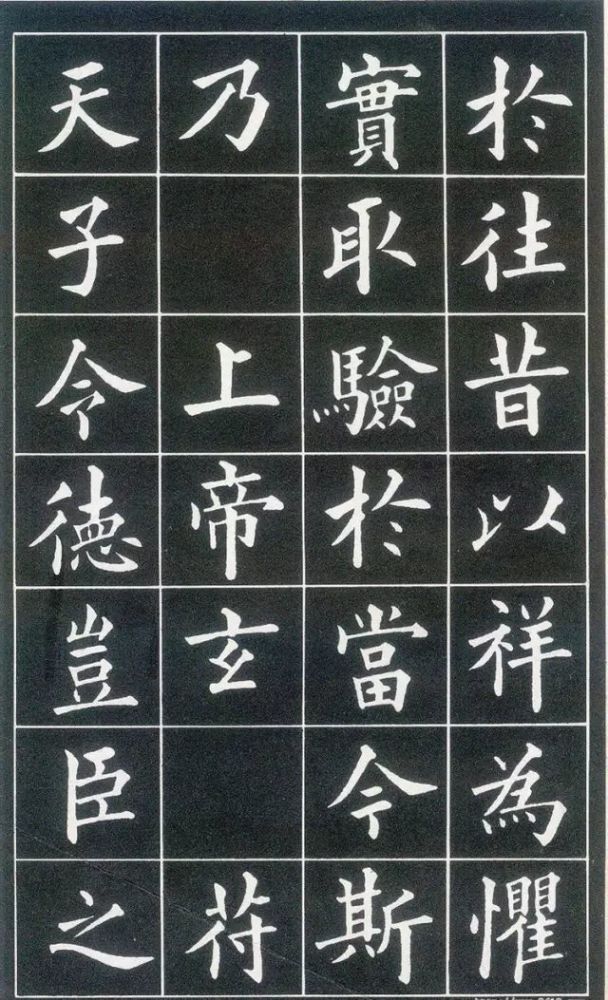 於往昔以祥為懼
實取驗於當今斯
乃上帝玄符
天子令德豈臣之